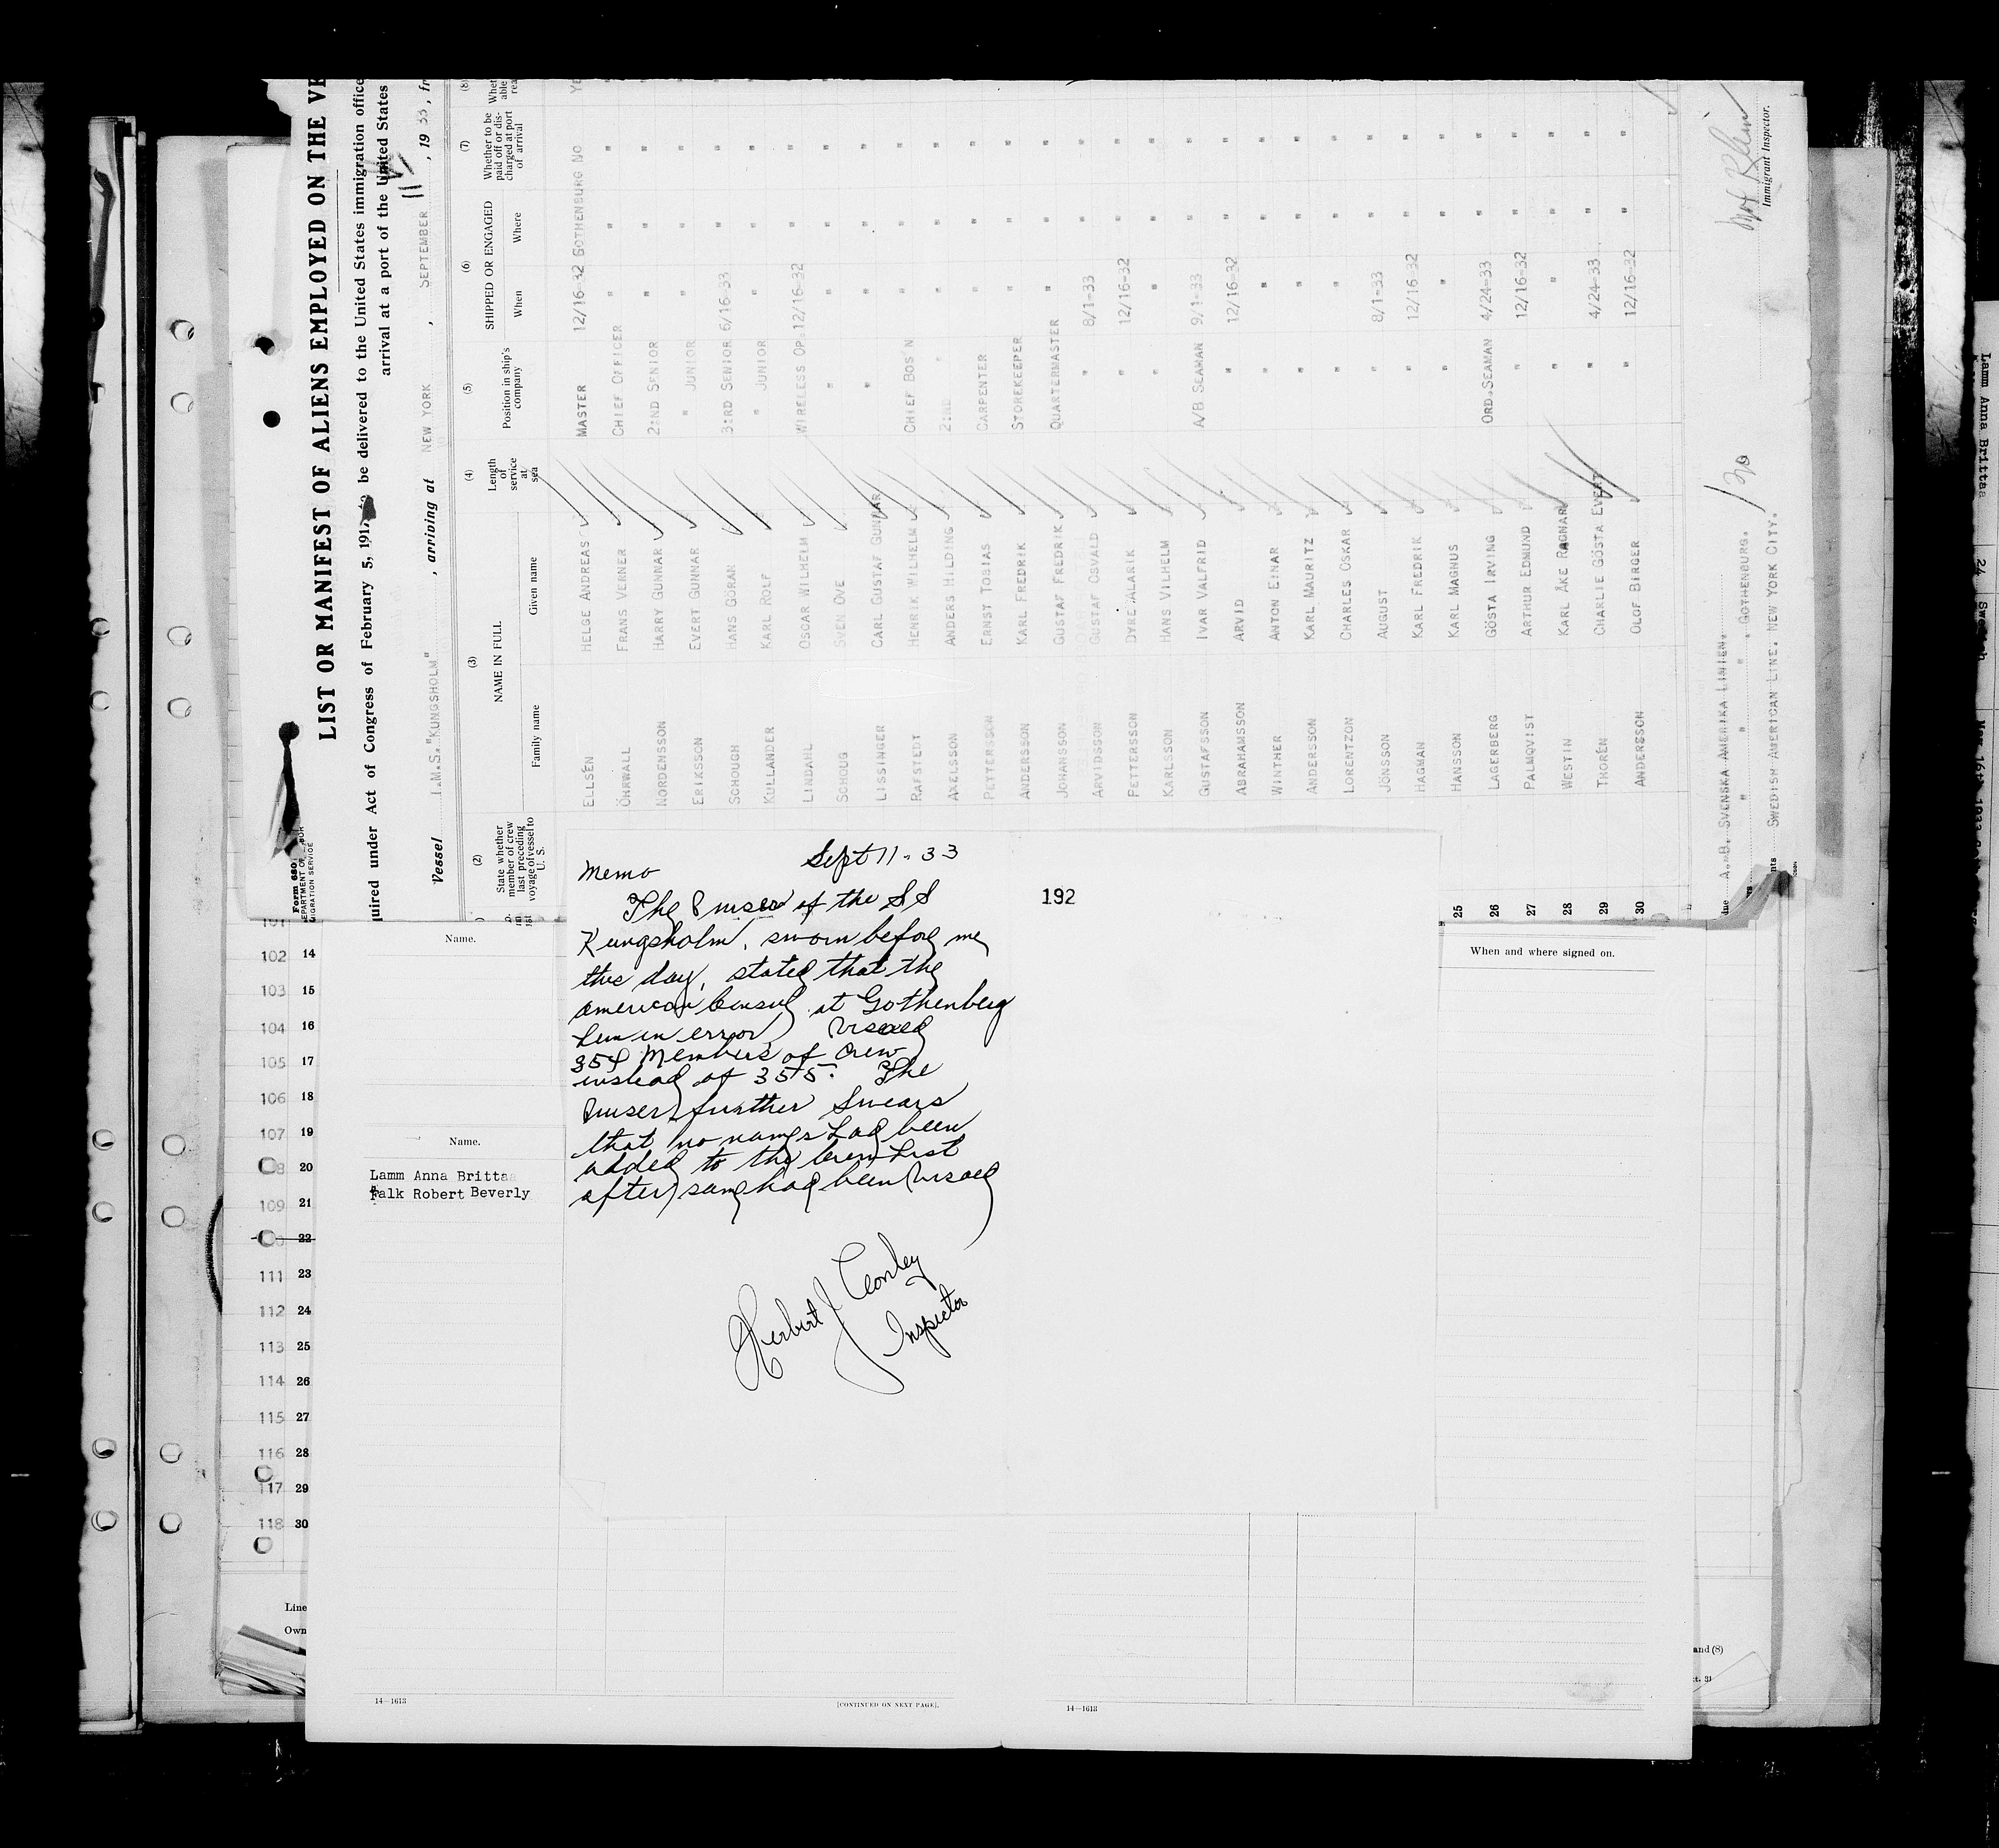 LIST OR MANIFEST OF ALIENS EMPLOYED ON THE VE
quired under Act of Congress of February 5, 191 be delivered to the United States immigration office
arrival at a port of the United States
Vessel I.M.S. "KUNGSHOLM" , arriving at NEW YORK , SEPTEMBER 11 , 19 33 , fr
Form 680
DEPARTMENT OF LABOR
MIGRATION SERVICE
(2) (3) (4) (5) (6) (7) (8)
State whether member of crew last preceding voyage of vessel to U. S.
NAME IN FULL
Family name Given name
Length of service at sea
Position in ship's company
SHIPPED OR ENGAGED
When Where
Whether to be paid off or discharged at port of arrival
ELLSÉN HELGE ANDREAS MASTER 12/16-32 GOTHENBURG NO YE
ÖHRWALL FRANS VERNER CHIEF OFFICER " " "
NORDENSSON HARRY GUNNAR 2:ND SENIOR " " "
ERIKSSON EVERT GUNNAR " JUNIOR " " "
SCHOUGH HANS GÖRAN 3:RD SENIOR 6/16-33 " "
KULLANDER KARL ROLF " JUNIOR " " "
LINDAHL OSCAR WILHELM WIRELESS OP. 12/16-32 " "
SCHOUG SVEN OVE " " " "
LISSINGER CARL GUSTAF GUNNAR " " " "
RAFSTEDT HENRIK WILHELM CHIEF BOS'N " " "
AXELSSON ANDERS HILDING 2:ND " " " "
PETTERSSON ERNST TOBIAS CARPENTER " " "
ANDERSSON KARL FREDRIK STOREKEEPER " " "
JOHANSSON GUSTAF FREDRIK QUARTERMASTER " " "
ARVIDSSON GUSTAF OSVALD " 8/1-33 " "
PETTERSSON DYRE ALARIK " 12/16-32 " "
KARLSSON HANS VILHELM " " " "
GUSTAFSSON IVAR VALFRID A/B SEAMAN 9/1-33 " "
ABRAHAMSSON ARVID " 12/16-32 " "
WINTHER ANTON EINAR " " " "
ANDERSSON KARL MAURITZ " " " "
LORENTZON CHARLES OSKAR " " " "
JÖNSSON AUGUST " 8/1-33 " "
HAGMAN KARL FREDRIK " 12/16-32 " "
25 HANSSON KARL MAGNUS " " " "
26 LAGERBERG GÖSTA IRVING ORD.SEAMAN 4/24-33 " "
27 PALMQVIST ARTHUR EDMUND " 12/16-32 " "
28 WESTIN KARL ÅKE RAGNAR " " " "
29 THORÉN CHARLIE GÖSTA EVERT " 4/24-33 " "
30 ANDERSSON OLOF BIRGER " 12/16-32 " "
A.-B. SVENSKA AMERIKA LINIEN.
" " " , GOTHENBURG.
SWEDISH AMERICAN LINE. NEW YORK CITY.
Immigrant Inspector.
Memo Sept 11-33
192
The Purser of the SS
Kungsholm, sworn before me
this day, stated that the
American Consul at Gothenberg
in error visaed
354 Members of Crew
instead of 355. The
Purser further swears
that no names had been
added to the Crew List
after same had been visaed
Herbert J Conley
Inspector
Name.
102 14
103 15
104 16
105 17
106 18
107 19
20
109 21
22
111 23
112 24
113 25
114 26
115 27
116 28
117 29
118 30
Name.
Lamm Anna Brittaa
Falk Robert Beverly
When and where signed on.
Line
Own
and (8)
14—1613
[CONTINUED ON NEXT PAGE].
14—1613
Lamm Anna Brittaa 24 Swedish